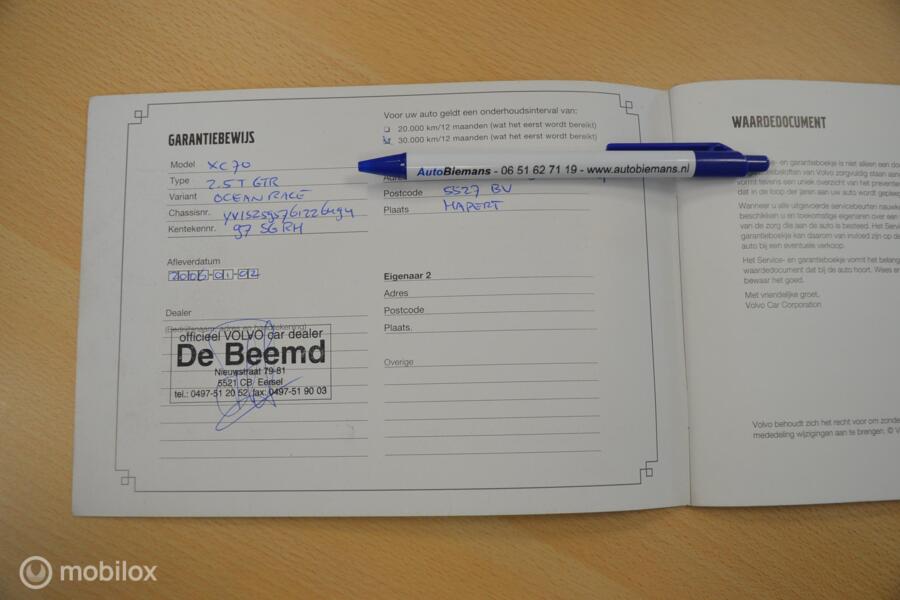 GARANTIEBEWIJS
Model XC70
Type 2.5T GTR
Variant OCEAN RACE
Chassisnr.
Kentekennr. 97 SG RH
Afleverdatum
2006-01-02
Dealer
(Bedrijfsnaam, adres en handtekening)
officieel VOLVO car dealer
De Beemd
Nieuwstraat 79-81
5521 CB Eersel
tel.: 0497-51 20 52, fax: 0497-51 90 03
Voor uw auto geldt een onderhoudsinterval van:
20.000 km/12 maanden (wat het eerst wordt bereikt)
30.000 km/12 maanden (wat het eerst wordt bereikt)
AutoBiemans - 06 51 62 71 19 - www.autobiemans.nl
Adres
Postcode 5527 BV
Plaats HAPERT
Eigenaar 2
Adres
Postcode
Plaats.
Overige
WAARDEDOCUMENT
en garantieboekje is niet alleen een
Volvo zorgvuldig staan
tevens een uniek overzicht van het
dat in de loop der jaren aan uw auto wordt
Wanneer u alle uitgevoerde servicebeurten
beschikken u en toekomstige eigenaren over een
van de zorg die aan de auto is besteed. Het
garantieboekje kan daarom van invloed zijn op de
auto bij een eventuele verkoop.
Het Service- en garantieboekje vormt het
waardedocument dat bij de auto hoort. Wees er
bewaar het goed.
Met vriendelijke groet,
Volvo Car Corporation
Volvo behoudt zich het recht voor om
mededeling wijzigingen aan te brengen. ©
mobilox